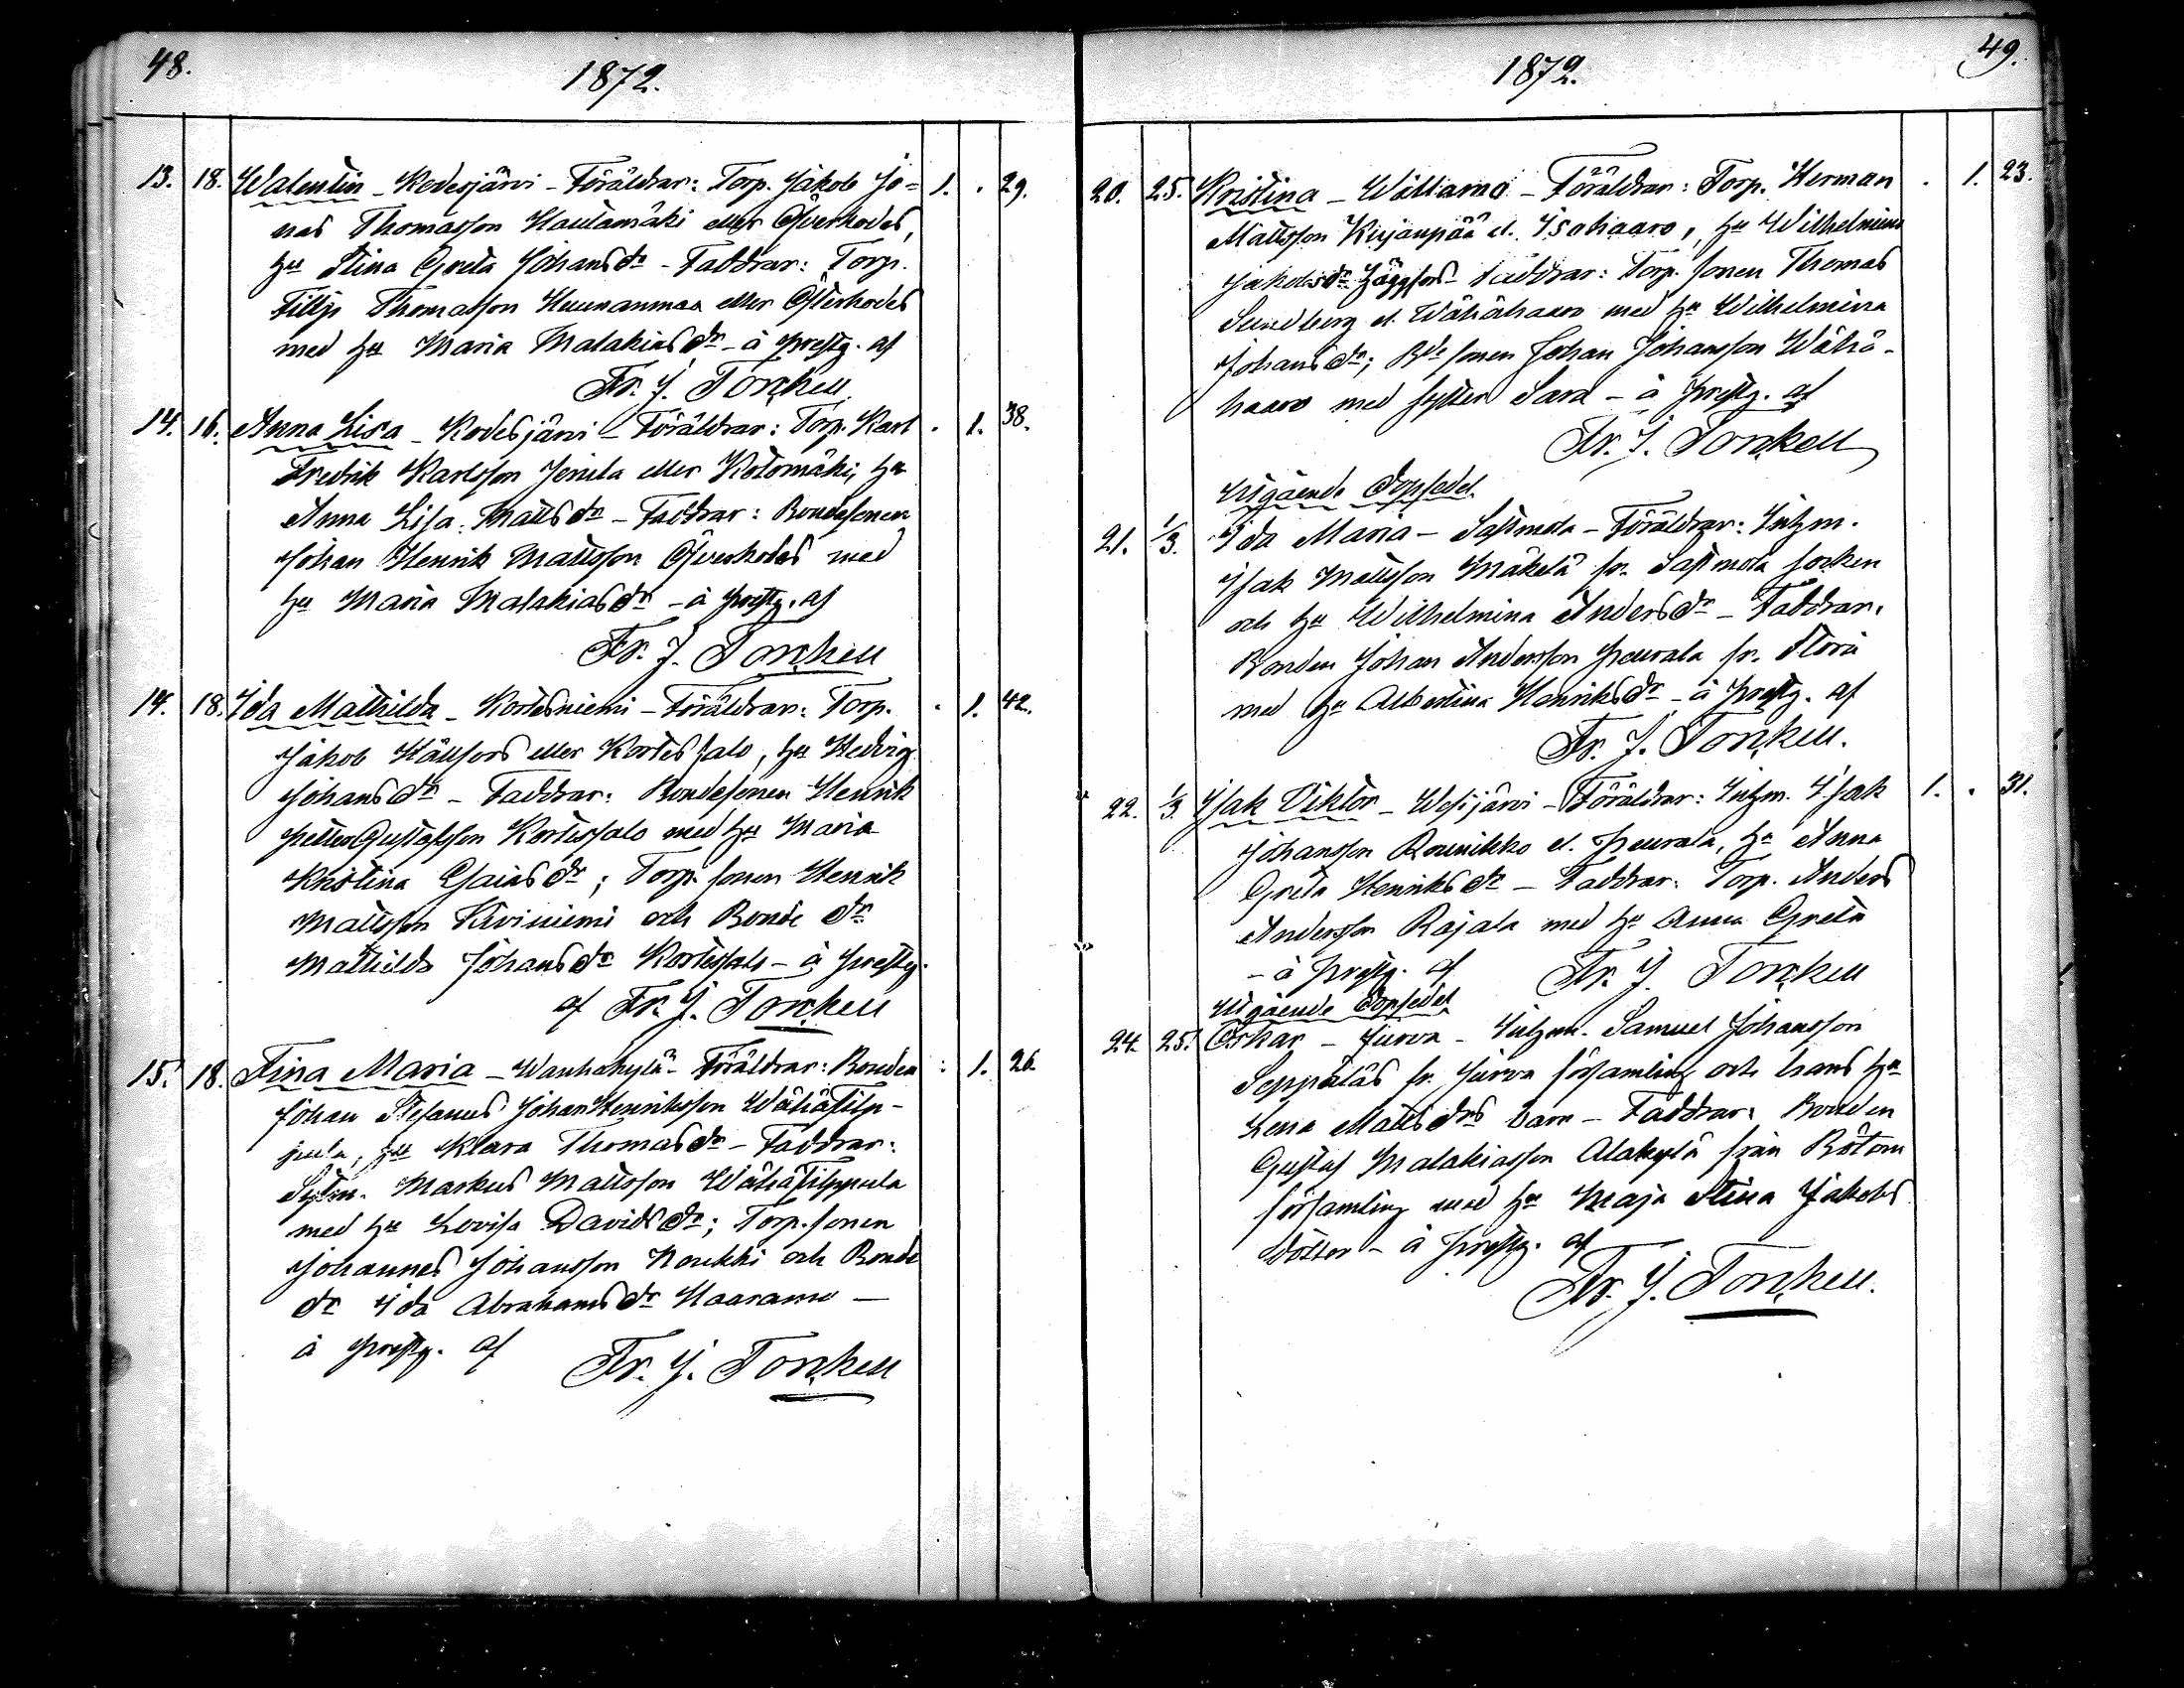 48.
1872.
13. 18. Walentin - Kodesjärvi - Föräldrar: Torp. Jakob Jo= 1. . 29.
nas Thomasson Hautamäki eller Öfverkodes,
hu Stina Greta Johansdr - Faddrar: Torp.
Filip Thomasson Huunanmaa eller Öfverkodes
med hu Maria Malakiasdr - à prestg. af
Fr. J. Tonkell
14. 16. Anna Lisa - Kodesjärvi - Föräldrar: Torp. Karl . 1. 38.
Fredrik Karlsson Jeniela eller Kotomäki, hu
Anna Lisa Mattsdr - Faddrar: Bondesonen
Johan Henrik Mattsson Öfverkodes med
hu Maria Malakiasdr - à prestg. af
Fr. J. Tonkell
14. 18. Ida Mathilda - Kortesniemi - Föräldrar: Torp. . 1. 42.
Jakob Hällfors eller Kortessalo, hu Hedvig
Johansdr - Faddrar: Bondesonen Henrik
Petter Gustafsson Kortessalo med hu Maria
Kristina Esaiasdr; Torp. sonen Henrik
Mattsson Kiviniemi och Bonde dr
Mathilda Johansdr Kortessalo - à prestg.
af Fr. J. Tonkell
15. 18. Fina Maria - Wanhakylä - Föräldrar: Bonden . 1. 26.
Johan Stefanus Johan Henriksson Wähäfilp-
pula, hu Klara Thomasdr - Faddrar:
Sytn. Markus Mattsson Wähäfilppula
med hu Lovisa Davidsdr; Torp. sonen
Johannes Johansson Koukki och Bonde
dr Ida Abrahamsdr Haaramo -
à prestg. af Fr. J. Tonkell
1872.
49.
20. 25. Kristina - Williamo - Föräldrar: Torp. Herman . 1. 23.
Mattsson Kirjanpää el. Isohaaro, hu Wilhelmina
Jakobsdr Häggfors - Faddrar: Torp. sonen Thomas
Sundberg el. Wähähaaro med hu Wilhelmina
Johansdr; Bde sonen Johan Johansson Wähä-
haaro med syster Sara - à prestg. af
Fr. J. Tonkell
Utgående dopsedel.
21. 1/3. Ida Maria - Sastmola - Föräldrar: Inhm.
Isak Mattsson Mäkelä fr. Sastmola socken
och hu Wilhelmina Andersdr - Faddrar:
Bonden Johan Andersson Peurala fr. Storå
med hu Albertina Henriksdr - à prestg. af
Fr. J. Tonkell.
22. 1/3. Isak Viktor - Wesijärvi - Föräldrar: Inhm. Isak 1. . 31.
Johansson Rounikko el. Peurala, hu Anna
Greta Henriksdr - Faddrar: Torp. Anders
Andersson Rajala med hu Anna Greta
- à prestg. af Fr. J. Tonkell
Utgående dopsedel.
24. 25. Oskar - Jurva - Inhm. Samuel Johansson
Seppäläs fr. Jurva församling och hans hu
Lena Mattsdrs barn - Faddrar: Bonden
Gustaf Malakiasson Alakylä från Bötom
församling med hu Maja Stina Jakobs
dotter - à prestg. af
Fr. J. Tonkell.